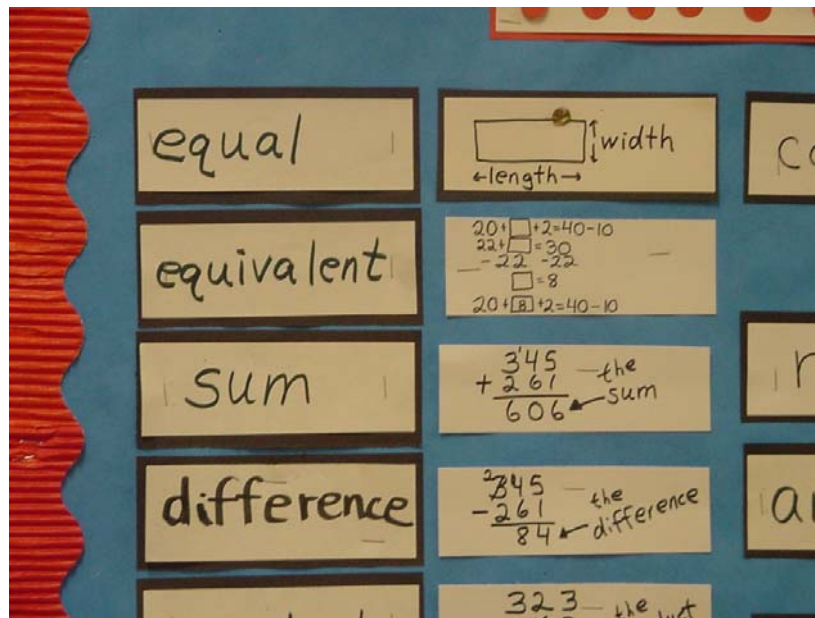 equal
width
←length→
equivalent
20+□+2=40-10
22+□=30
-22 -22
□=8
20+8+2=40-10
sum
345
+261
606
the
sum
difference
345
-261
84
the
difference
323
the